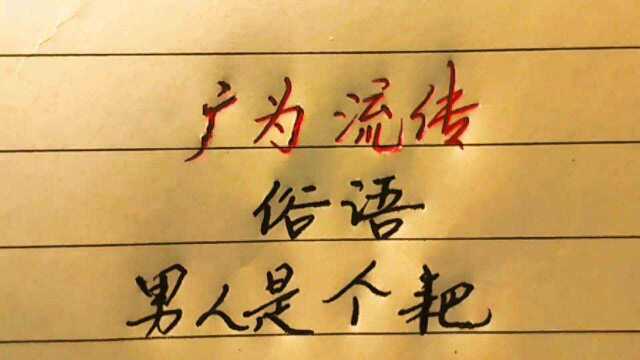 广为流传
俗语
男人是个耙